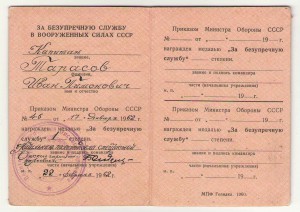 ЗА БЕЗУПРЕЧНУЮ СЛУЖБУ
В ВООРУЖЕННЫХ СИЛАХ СССР
Капитан
звание
Тарасов
фамилия
Иван
имя и отчество
Приказом Министра Обороны СССР
№ от января 1962 г.
награжден медалью „За безупречную
службу" степени.
22 февраля 1962 г.
Приказом Министра Обороны СССР
№ от „ " 19 г.
награжден медалью „За безупречную
службу" степени.
звание и подпись командира
части (начальника учреждения)
„ " 19 г.
Приказом Министра Обороны СССР
№ от „ " 19 г.
награжден медалью „За безупречную
службу" степени.
звание и подпись командира
части (начальника учреждения)
„ " 19 г.
МПФ Гознака. 1960.